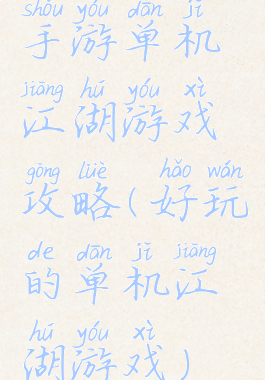 shǒu yóu dān jī
手游单机
jiāng hú yóu xì
江湖游戏
gōng lüè hǎo wán
攻略(好玩
de dān jī jiāng
的单机江
hú yóu xì
湖游戏)